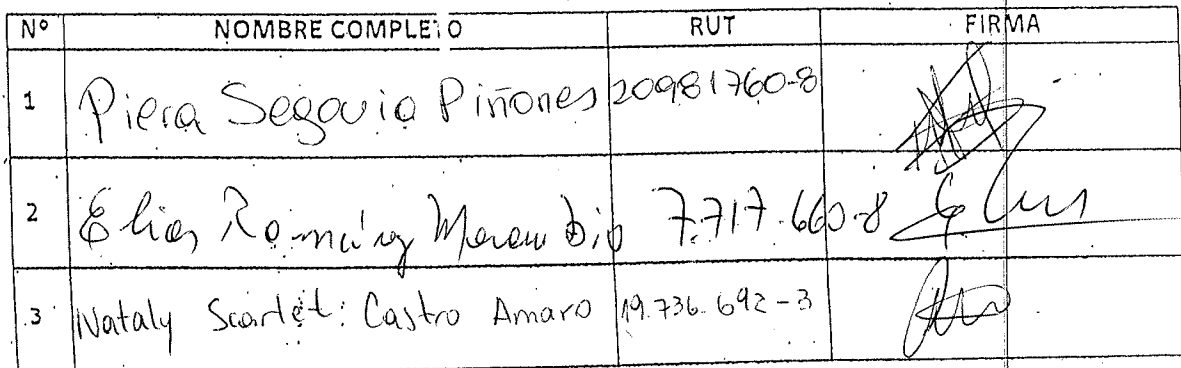 Nº NOMBRE COMPLETO RUT FIRMA
1 Piera Segovia Piñones 20981760-8
2 Elias 7.717.660-8
3 Nataly Scarlet: Castro Amaro 19.736.692-3